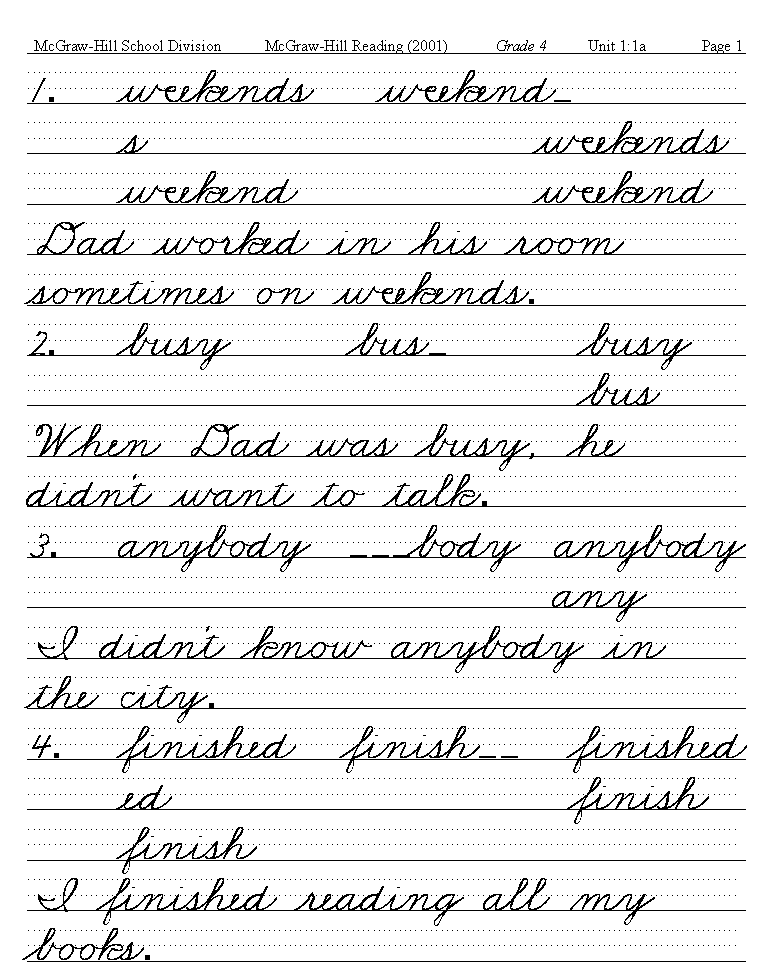 McGraw-Hill School Division McGraw-Hill Reading (2001) Grade 4 Unit 1:1a Page 1
1. weekends weekend_
s weekends
weekend weekend
Dad worked in his room
sometimes on weekends.
2. busy bus_ busy
bus
When Dad was busy, he
didn't want to talk.
3. anybody ___body anybody
any
I didn't know anybody in
the city.
4. finished finish__ finished
ed finish
finish
I finished reading all my
books.